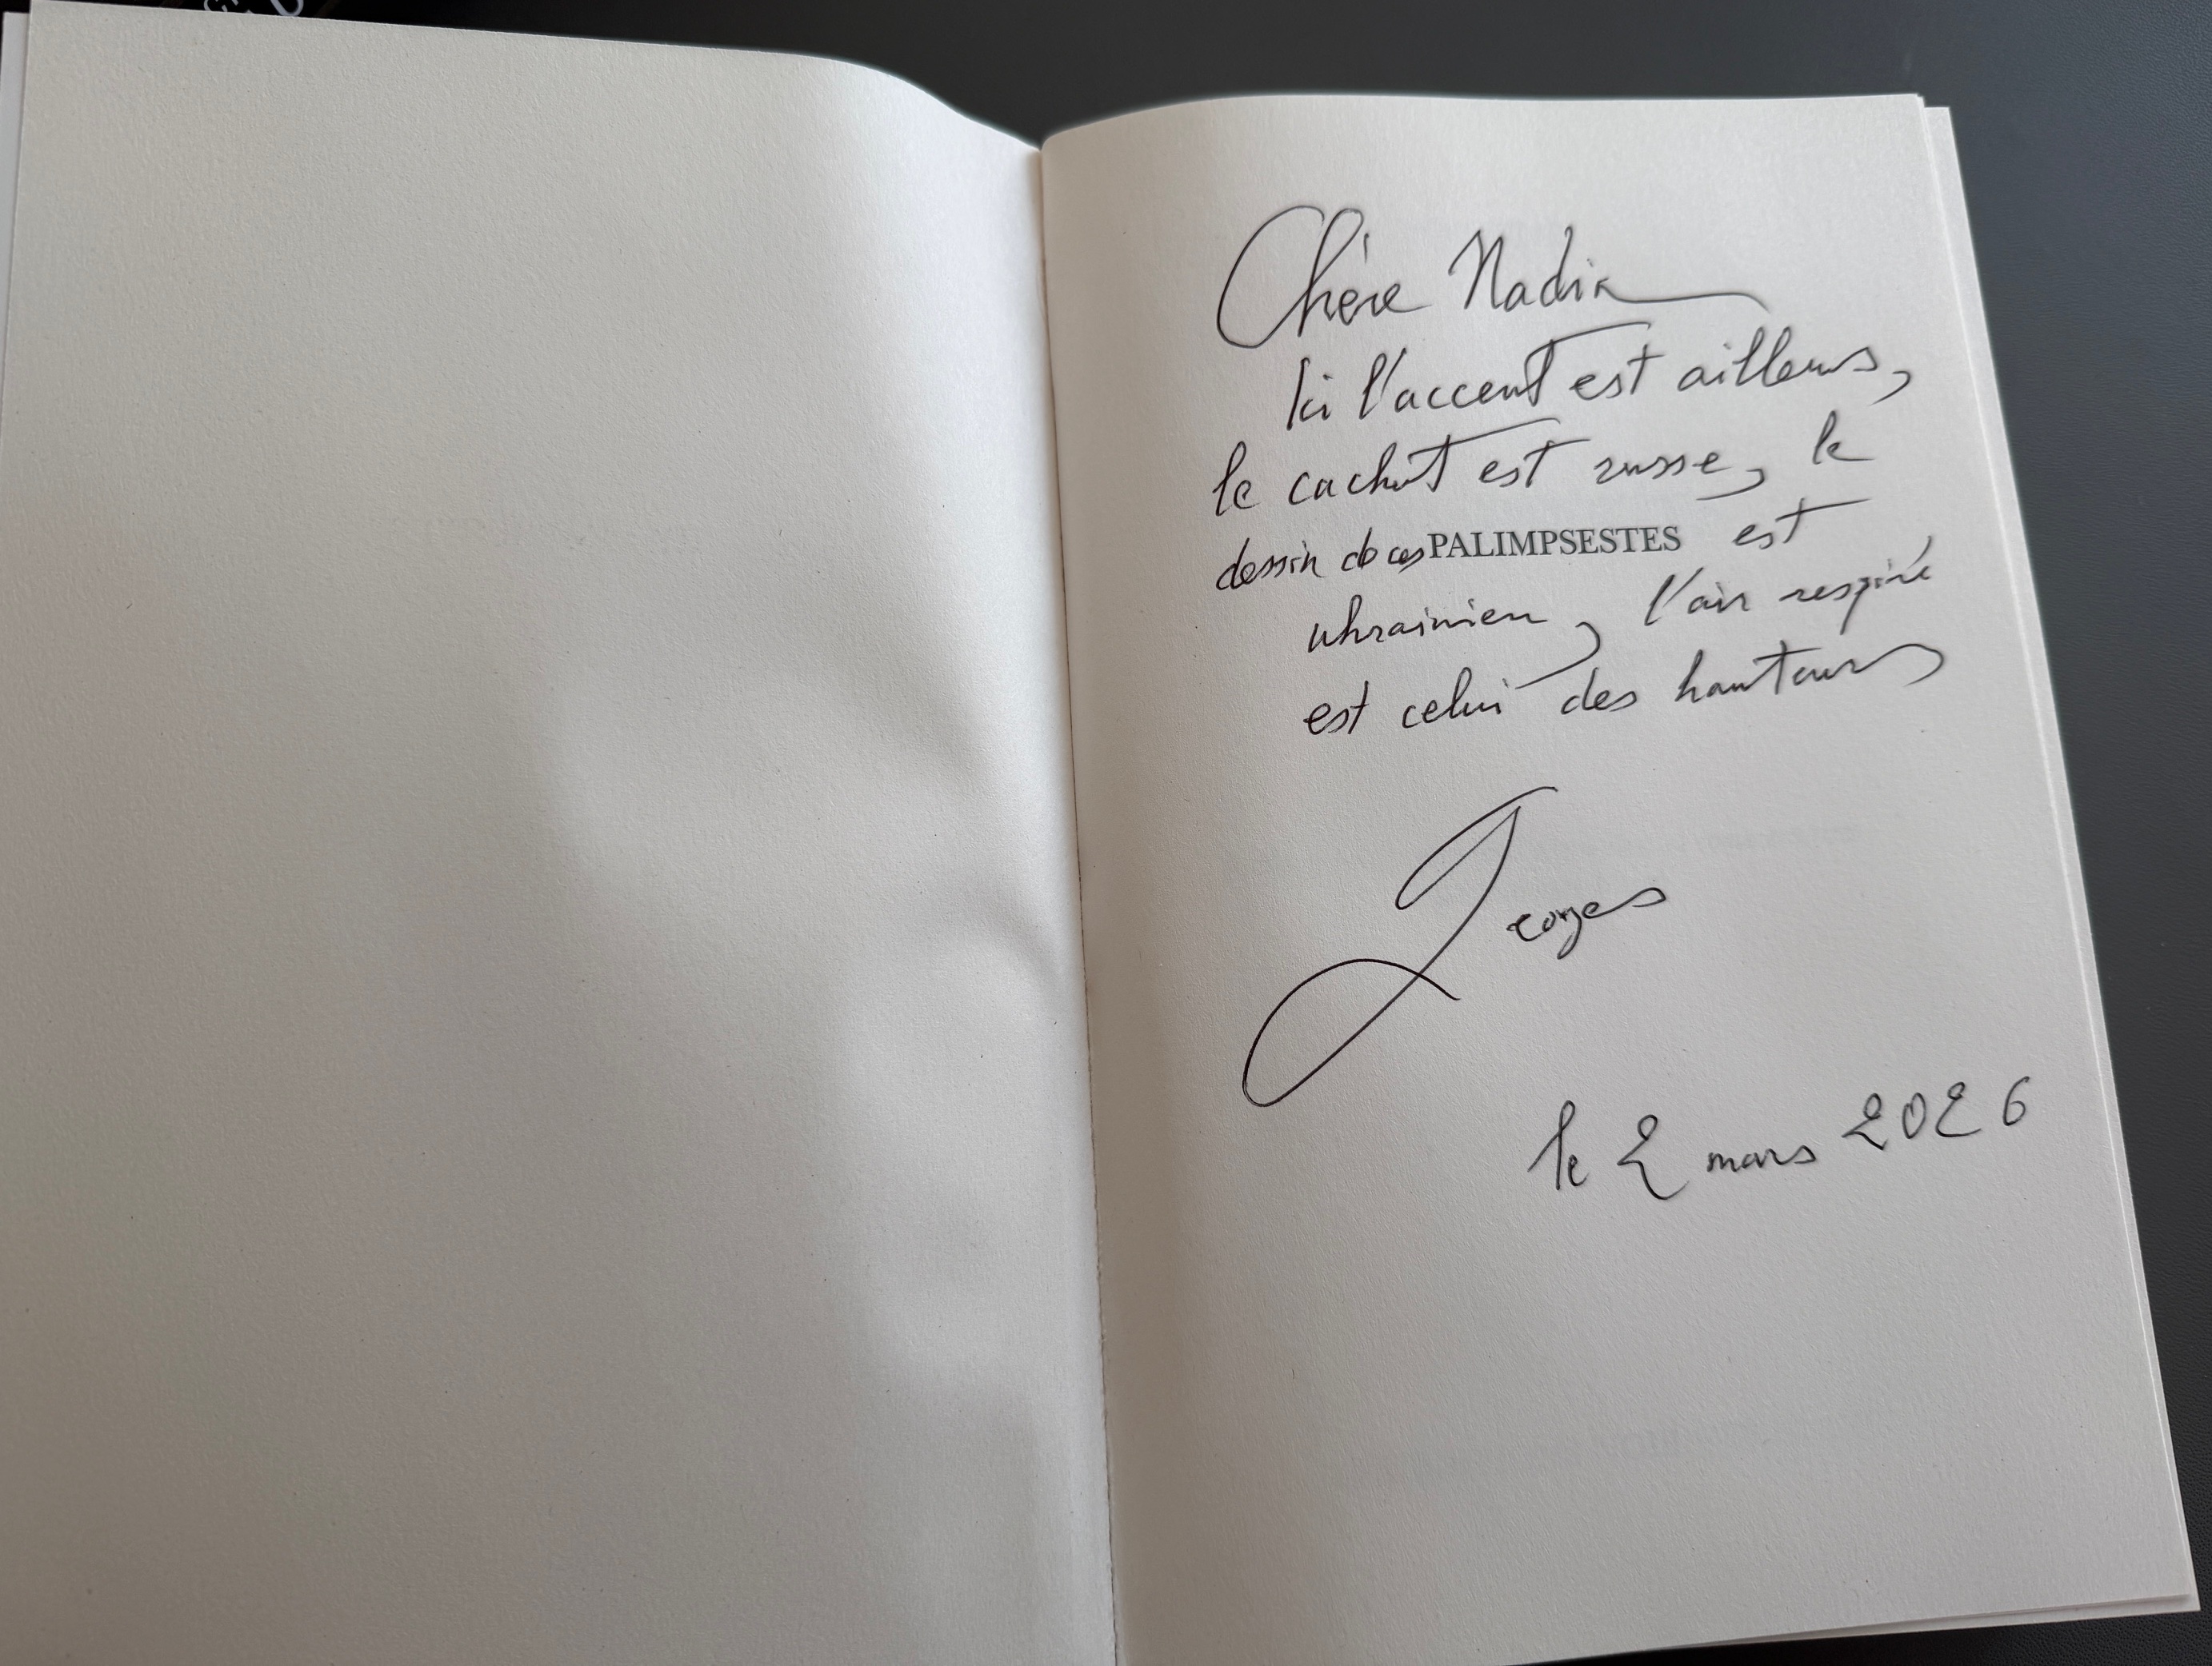 Chère Nadia
Ici l'accent est ailleurs,
le cachot est russe, le
dessin de ces PALIMPSESTES est
ukrainien, l'air respiré
est celui des hauteurs
Georges
le 2 mars 2026